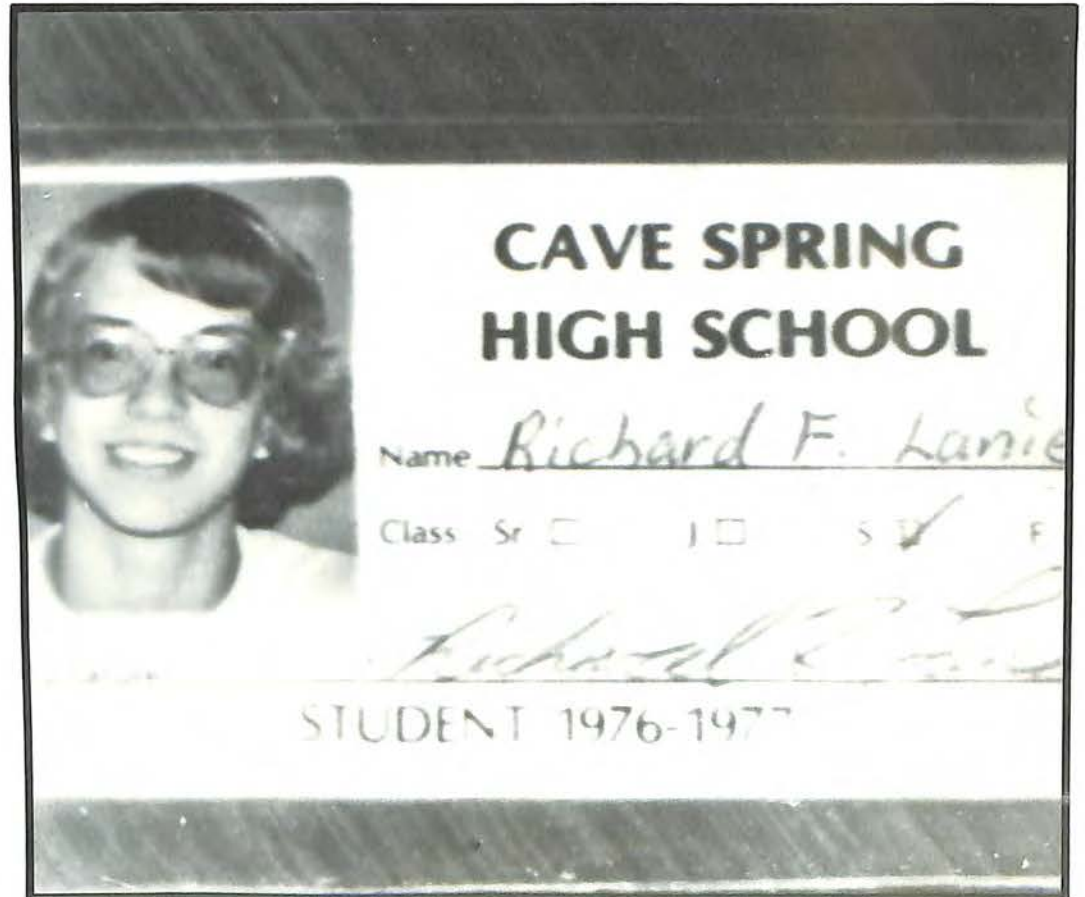 CAVE SPRING
HIGH SCHOOL
Name Richard F. Lanie
Class Sr J S F
Richard
STUDENT 1976-197